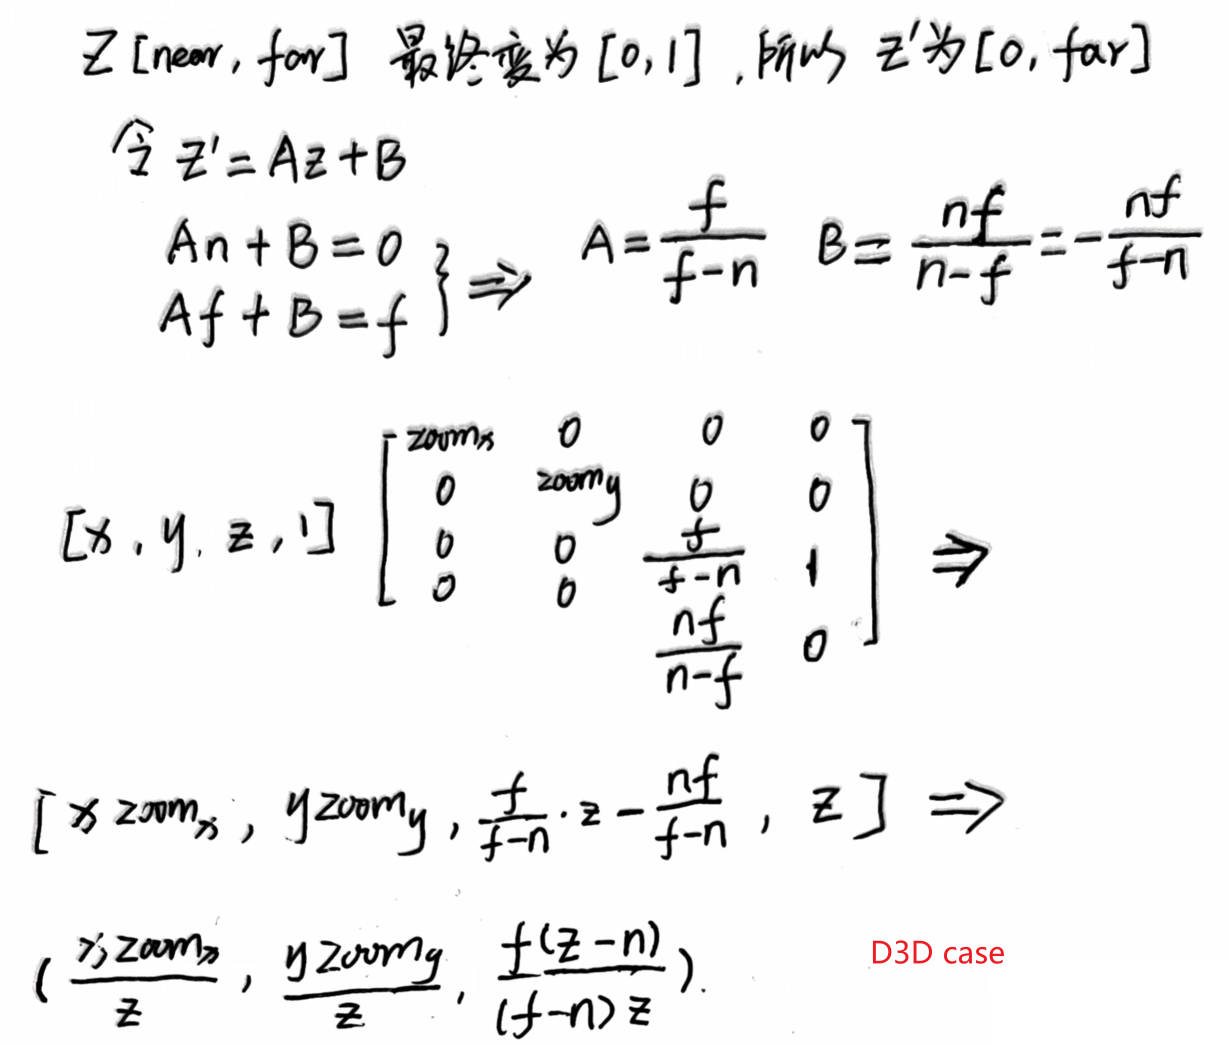 Z [near, far] 最终变为 [0,1] ,所以 z'为[0, far]
令 z'=Az+B
An+B=0
Af+B=f } ⇒ A=f/(f-n) B=nf/(n-f)=-nf/(f-n)
[x, y, z, 1] [ zoomx 0 0 0
0 zoomy 0 0
0 0 f/(f-n) 1
0 0 nf/(n-f) 0 ] ⇒
[x zoomx, y zoomy, f/(f-n)·z - nf/(f-n), z] ⇒
(x zoomx/z, y zoomy/z, f(z-n)/((f-n)z)).
D3D case